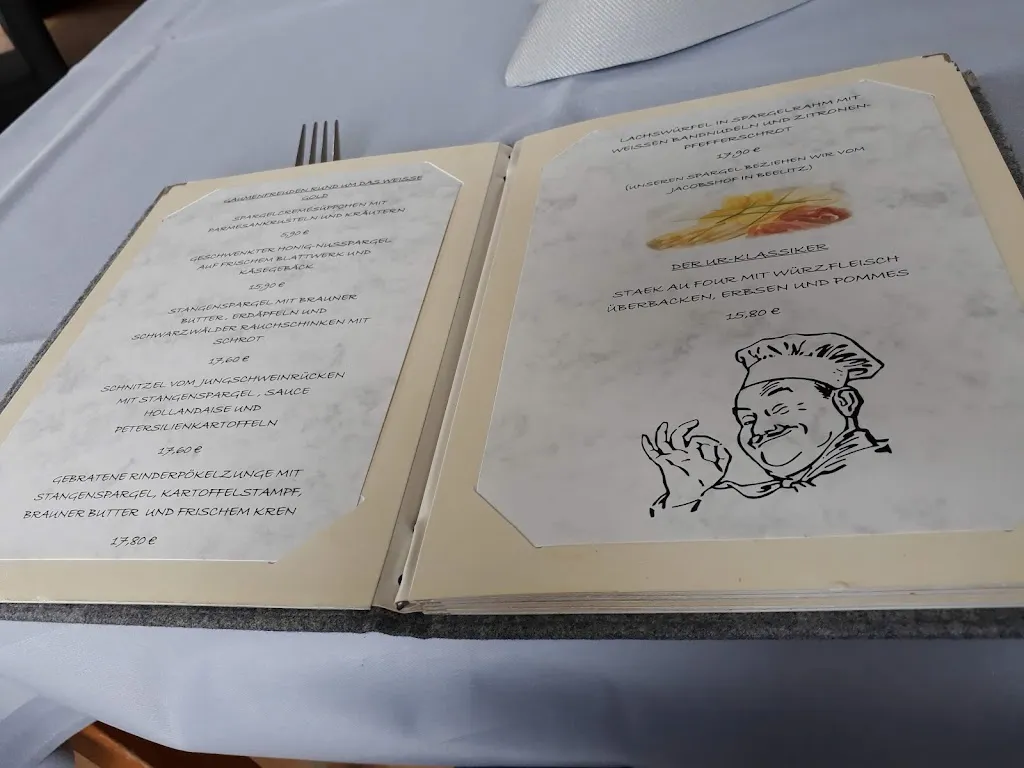 GAUMENFREUDEN RUND UM DAS WEISSE
GOLD
SPARGELCREMESÜPPCHEN MIT
PARMESANKRUSTELN UND KRÄUTERN
5,90 €
GESCHWENKTER HONIG-NUSSPARGEL
AUF FRISCHEM BLATTWERK UND
KÄSEGEBÄCK
15,90 €
STANGENSPARGEL MIT BRAUNER
BUTTER, ERDÄPFELN UND
SCHWARZWÄLDER RAUCHSCHINKEN MIT
SCHROT
17,60 €
SCHNITZEL VOM JUNGSCHWEINRÜCKEN
MIT STANGENSPARGEL, SAUCE
HOLLANDAISE UND
PETERSILIENKARTOFFELN
17,60 €
GEBRATENE RINDERPÖKELZUNGE MIT
STANGENSPARGEL, KARTOFFELSTAMPF,
BRAUNER BUTTER UND FRISCHEM KREN
17,80 €
LACHSWÜRFEL IN SPARGELRAHM MIT
WEISSEN BANDNUDELN UND ZITRONEN-
PFEFFERSCHROT
17,90 €
(UNSEREN SPARGEL BEZIEHEN WIR VOM
JACOBSHOF IN BEELITZ)
DER UR-KLASSIKER
STAEK AU FOUR MIT WÜRZFLEISCH
ÜBERBACKEN, ERBSEN UND POMMES
15,80 €